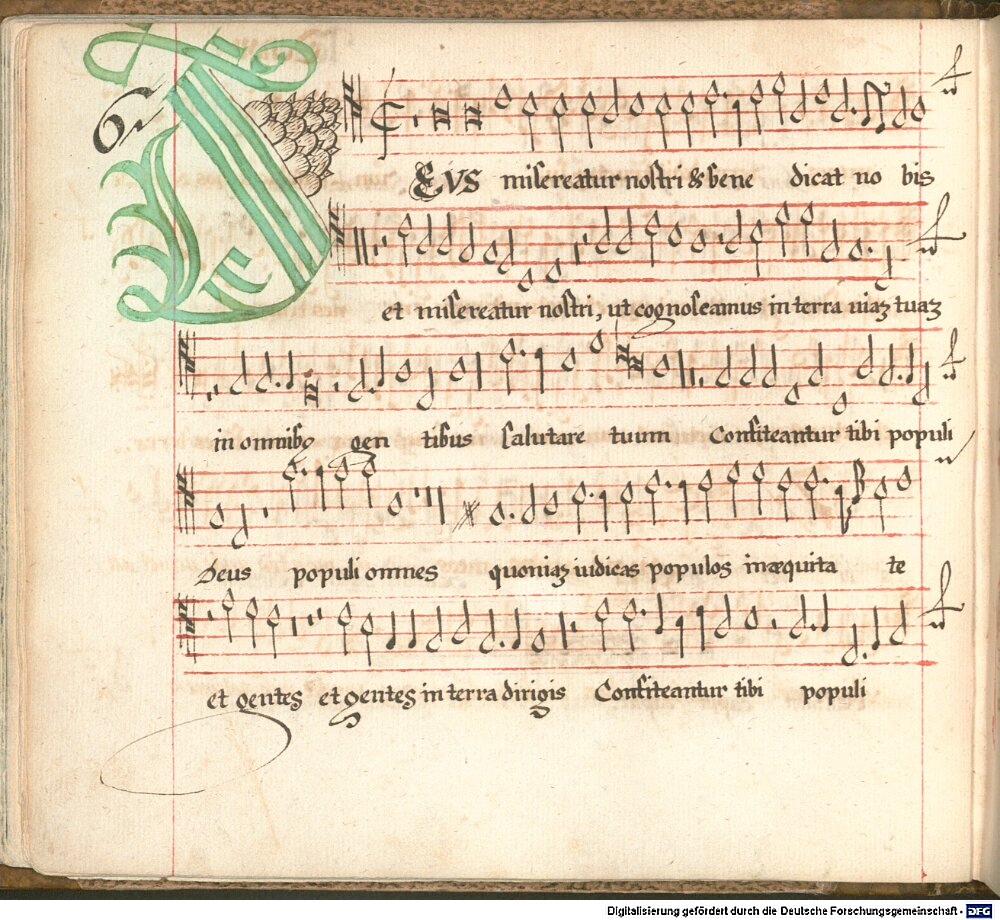 6
DEVS misereatur nostri & bene dicat no bis
et misereatur nostri, ut cognoscamus in terra uiaʒ tuaʒ
in omnibꝯ gen tibus salutare tuum Confiteantur tibi populi
Deus populi omnes quoniaʒ iudicas populos in æquita te
et gentes et gentes in terra dirigis Confiteantur tibi populi
Digitalisierung gefördert durch die Deutsche Forschungsgemeinschaft - DFG